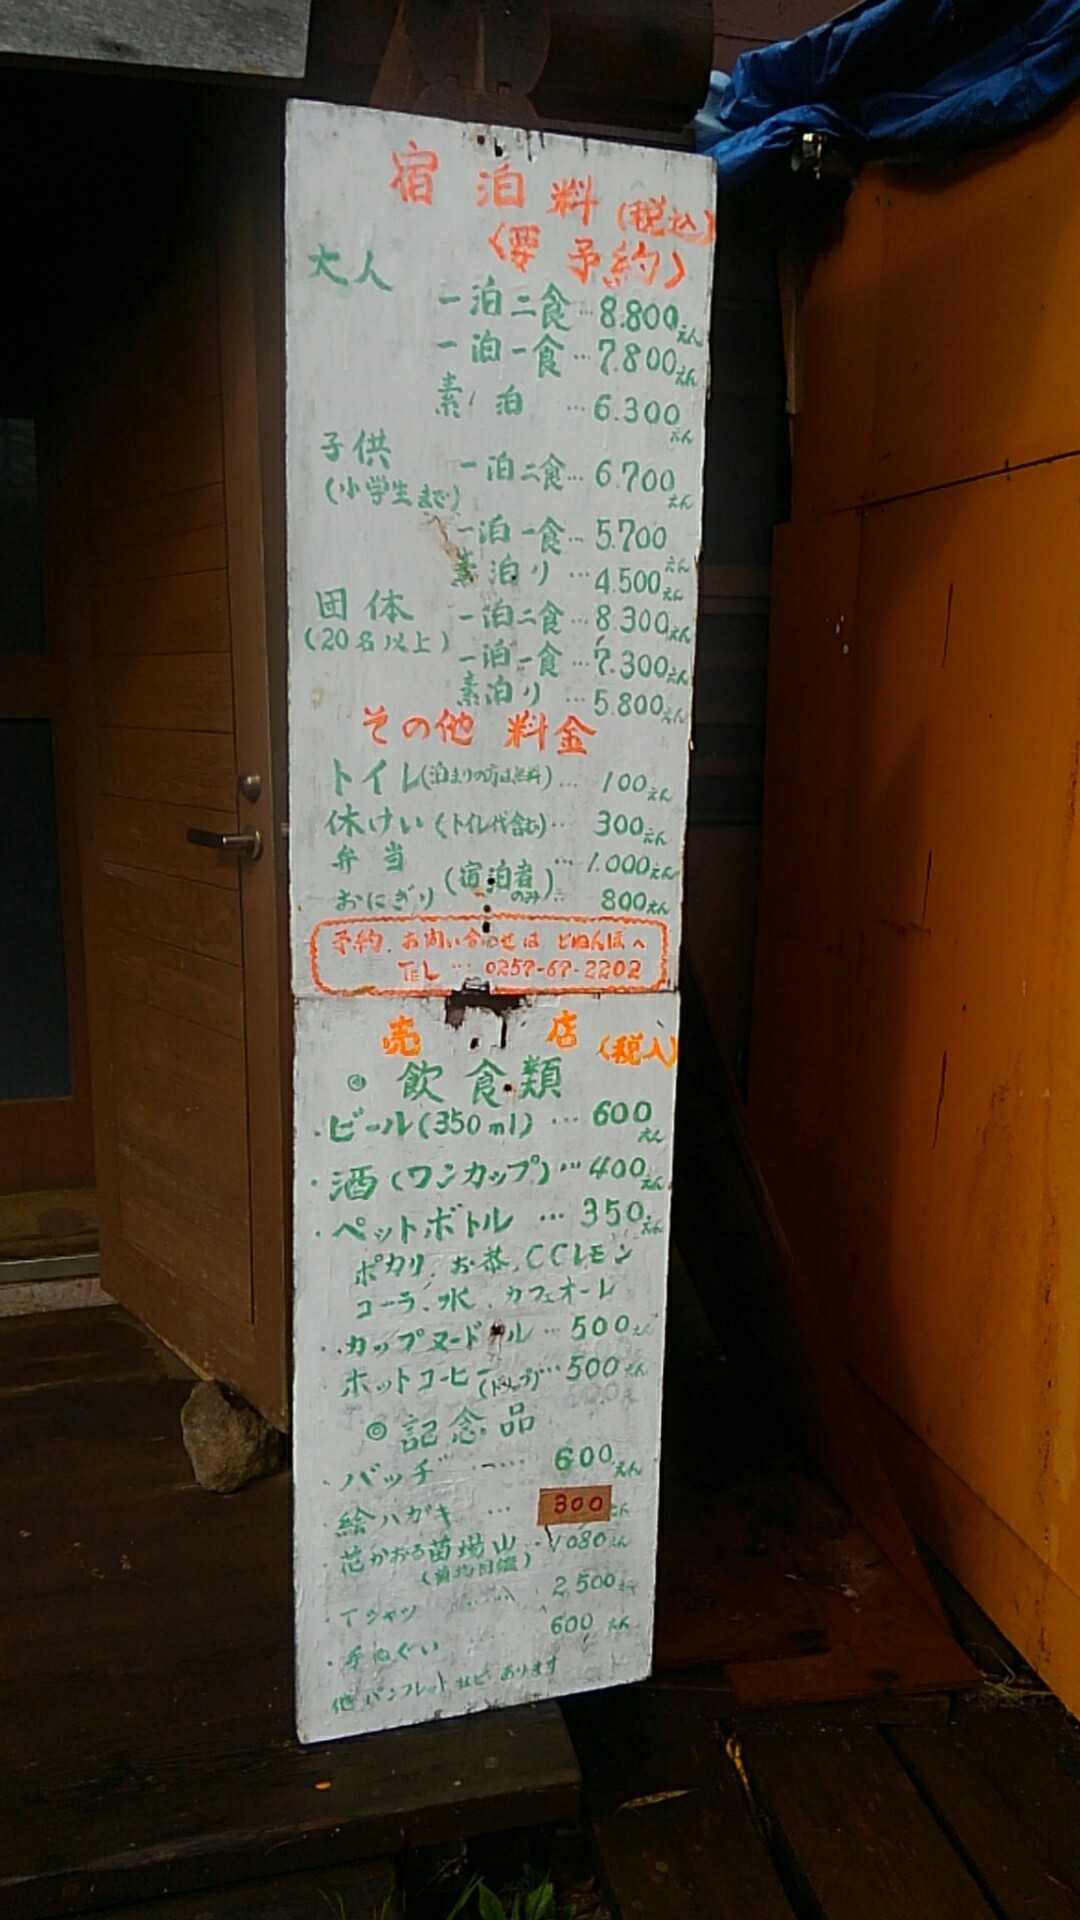 宿泊料(税込)
〈要予約〉
大人
一泊二食…8.800えん
一泊一食…7.800えん
素泊…6.300えん
子供
(小学生まで)
一泊二食…6.700えん
一泊一食…5.700えん
素泊り…4.500えん
団体
(20名以上)
一泊二食…8.300えん
一泊一食…7.300えん
素泊り…5.800えん
その他料金
トイレ(泊まりの方は無料)…100えん
休けい(トイレ代含む)…300えん
弁当…1.000えん
(宿泊者のみ)
おにぎり…800えん
予約、お問い合わせは どねんぼへ
TEL…0257-67-2202
売店(税入)
◎飲食類
・ビール(350ml)…600えん
・酒(ワンカップ)…400えん
・ペットボトル…350えん
ポカリ、お茶、CCレモン
コーラ、水、カフェオーレ
・カップヌードル…500えん
ホットコーヒー(ドリップ)…500えん
◎記念品
・バッチ……600えん
・絵ハガキ…300えん
・花かおる苗場山…1080えん
(植物図鑑)
・Tシャツ……2.500えん
・手ぬぐい 600えん
他パンフレットなどあります